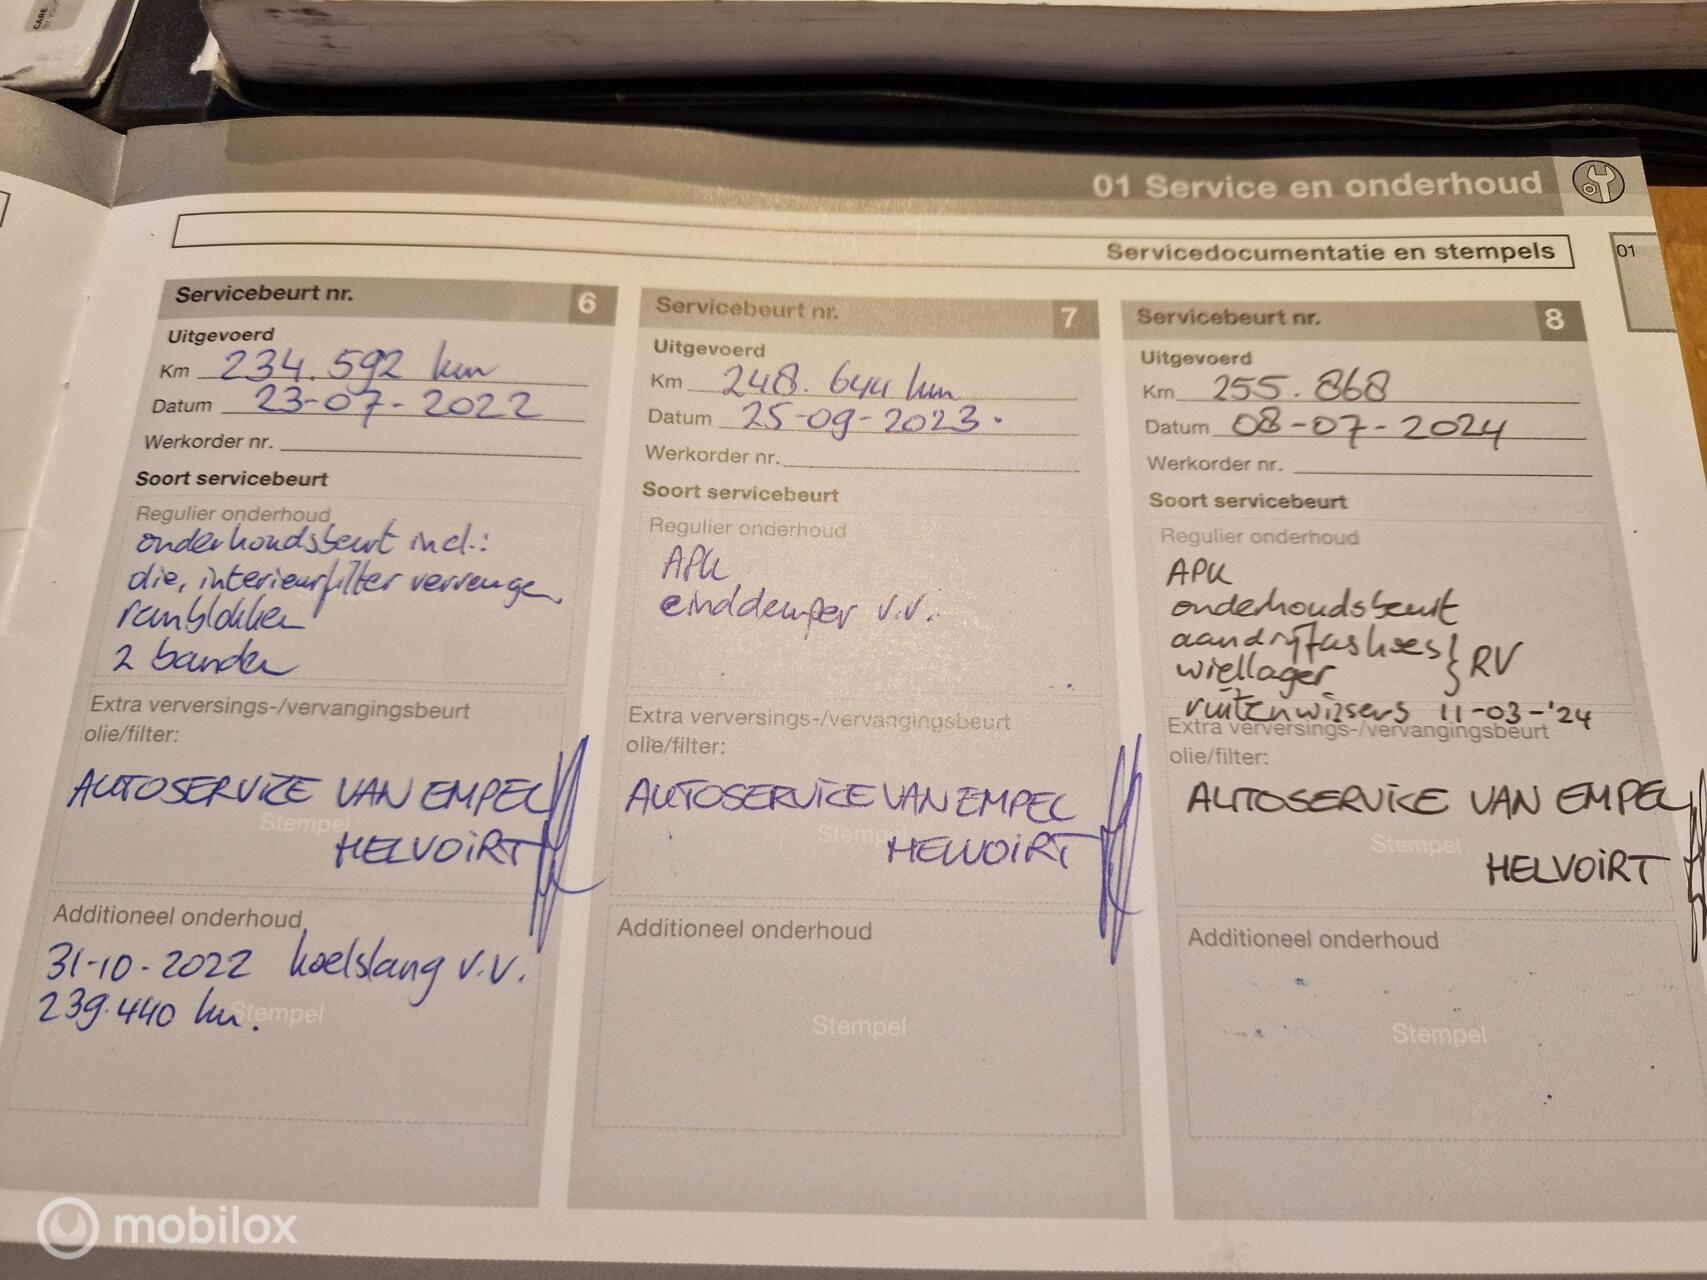 CARE
01 Service en onderhoud
Servicedocumentatie en stempels
01
Servicebeurt nr. 6
Uitgevoerd
Km 234.592 km
Datum 23-07-2022
Werkorder nr.
Soort servicebeurt
Regulier onderhoud
onderhoudsbeurt incl.:
olie, interieurfilter vervangen
remblokken
2 banden
Extra verversings-/vervangingsbeurt
olie/filter:
AUTOSERVICE VAN EMPEL
Stempel
HELVOIRT
Additioneel onderhoud
31-10-2022 koelslang v.v.
239.440 km.
Stempel
Servicebeurt nr. 7
Uitgevoerd
Km 248.644 km
Datum 25-09-2023.
Werkorder nr.
Soort servicebeurt
Regulier onderhoud
APK
einddemper v.v.
Extra verversings-/vervangingsbeurt
olie/filter:
AUTOSERVICE VAN EMPEL
Stempel
HELVOIRT
Additioneel onderhoud
Stempel
Servicebeurt nr. 8
Uitgevoerd
Km 255.868
Datum 08-07-2024
Werkorder nr.
Soort servicebeurt
Regulier onderhoud
APK
onderhoudsbeurt
aandrijfashoes } RV
wiellager
ruitenwissers 11-03-'24
Extra verversings-/vervangingsbeurt
olie/filter:
AUTOSERVICE VAN EMPEL
Stempel
HELVOIRT
Additioneel onderhoud
Stempel
mobilox